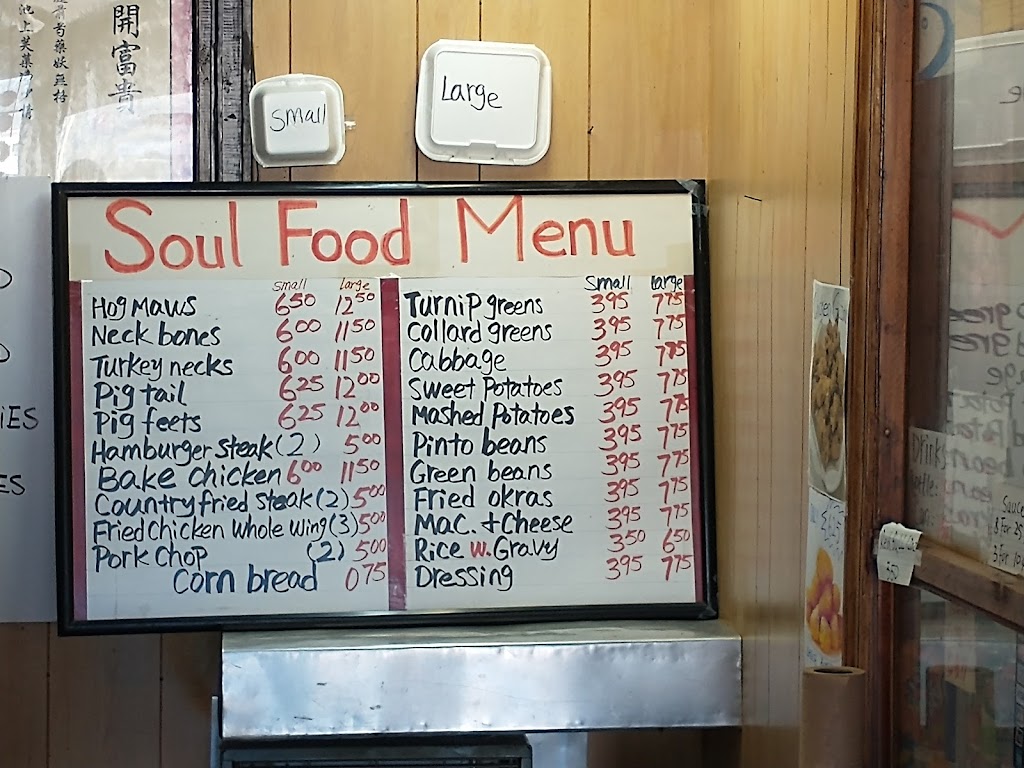 開富貴
small
Large
Soul Food Menu
small Large
Hog Maws 6.50 12.50
Neck bones 6.00 11.50
Turkey necks 6.00 11.50
Pig tail 6.25 12.00
Pig feets 6.25 12.00
Hamburger steak (2) 5.00
Bake chicken 6.00 11.50
Country fried steak (2) 5.00
Fried chicken whole wing (3) 5.00
Pork chop (2) 5.00
Corn bread 0.75
Small Large
Turnip greens 3.95 7.75
Collard greens 3.95 7.75
Cabbage 3.95 7.75
Sweet Potatoes 3.95 7.75
Mashed Potatoes 3.95 7.75
Pinto beans 3.95 7.75
Green beans 3.95 7.75
Fried okras 3.95 7.75
Mac. + Cheese 3.95 7.75
Rice w. Gravy 3.50 6.50
Dressing 3.95 7.75
iES
ES
Drink
Sauce